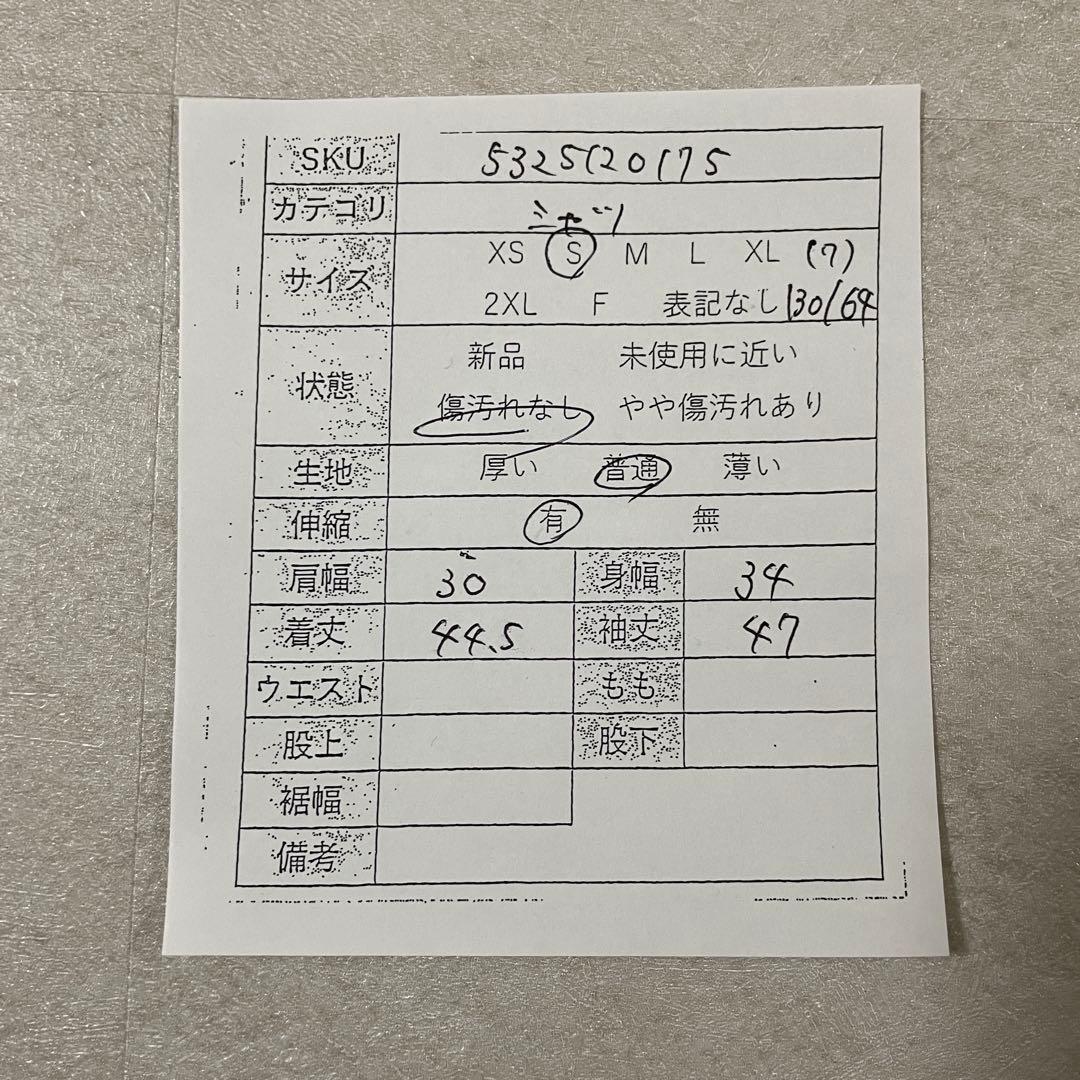 SKU 5325120175
カテゴリ シャツ
サイズ XS S M L XL (7)
2XL F 表記なし 130/64
状態 新品 未使用に近い
傷汚れなし やや傷汚れあり
生地 厚い 普通 薄い
伸縮 有 無
肩幅 30 身幅 34
着丈 44.5 袖丈 47
ウエスト もも
股上 股下
裾幅
備考